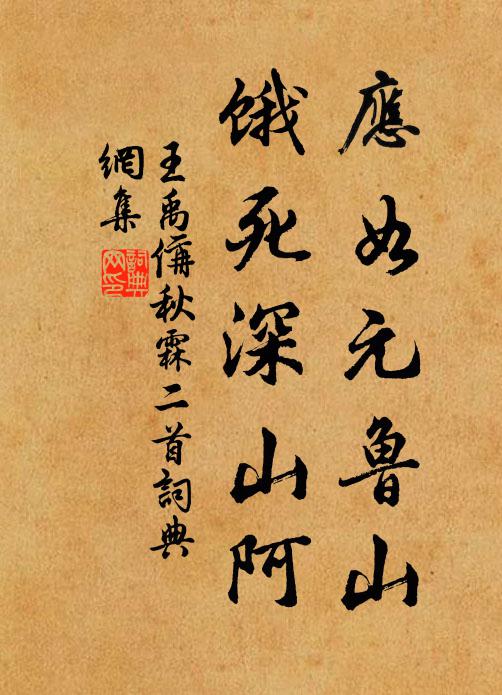 應如元魯山
餓死深山阿
王禹偁秋霖二首詞典
網集
詞典
网印